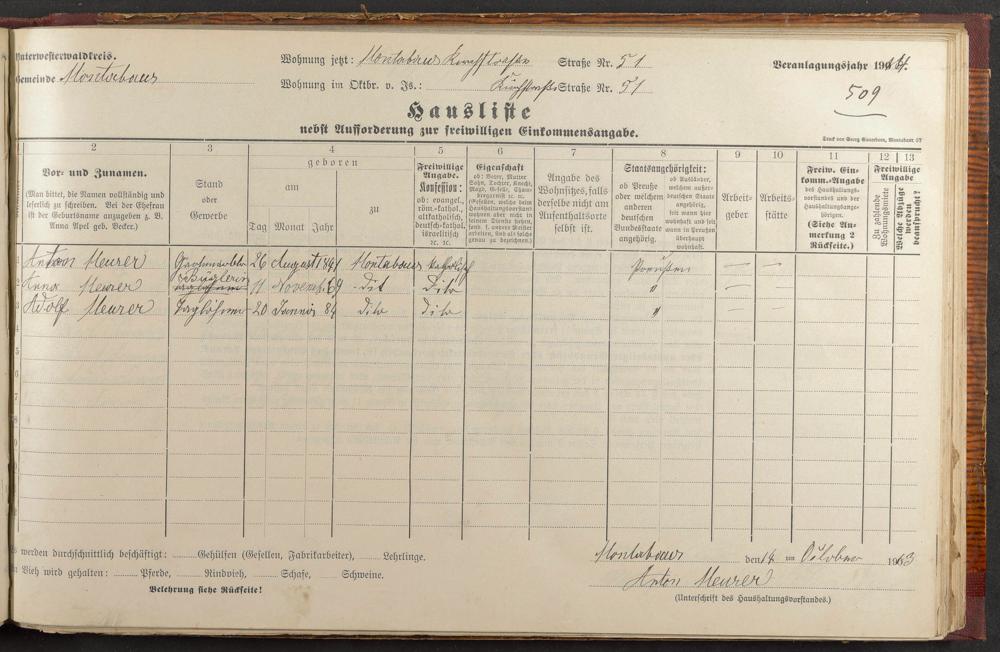 Unterwesterwaldkreis.
Gemeinde Montabaur
Wohnung jetzt: Montabaur Kirchstraße Straße Nr. 51
Wohnung im Oktbr. v. Js.: Kirchstraße Straße Nr. 51
Veranlagungsjahr 19
509
Hausliste
nebst Aufforderung zur freiwilligen Einkommensangabe.
Druck von Georg Sauerborn, Montabaur
2 3 4 5 6 7 8 9 10 11 12 13
Vor- und Zunamen.
(Man bittet, die Namen vollständig und
leserlich zu schreiben. Bei der Ehefrau
ist der Geburtsname anzugeben z. B.
Anna Apel geb. Becker.)
Stand
oder
Gewerbe
geboren
am
zu
Tag Monat Jahr
Freiwillige
Angabe.
Konfession:
ob: evangel.,
röm.-kathol.,
altkatholisch,
deutsch-kathol.
israelitisch
ꝛc. ꝛc.
Eigenschaft
ob: Vater, Mutter
Sohn, Tochter, Knecht,
Magd, Gesell,
(Gesellen, welche beim
Haushaltungsvorstand
wohnen aber nicht in
seinem Dienste stehen,
sind f. andere Meister
arbeiten, sind als solche
genau zu bezeichnen.)
Angabe des
Wohnsitzes, falls
derselbe nicht am
Aufenthaltsorte
selbst ist.
Staatsangehörigkeit:
ob Preuße
oder welchem
anderen
deutschen
Bundesstaate
angehörig.
ob Ausländer,
welchem außer-
deutschen Staate
angehörig,
seit wann hier
wohnhaft und seit
wann in Preußen
überhaupt
wohnhaft.
Arbeit-
geber
Arbeits-
stätte
Freiw. Ein-
komm.-Angabe
des Haushaltungs-
vorstandes und der
Haushaltungsange-
hörigen.
(Siehe An-
merkung 2
Rückseite.)
Freiwillige
Angabe
Zu zahlende
Wohnungsmiete
Welche Abzüge
werden
beansprucht?
1 Anton Meurer 26 August 1841 Montabaur katholisch Preußen — —
2 Anna Meurer Büglerin 11 Novemb. 69 dit Dito " — —
3 Adolf Meurer Taglöhner 20 Januar 84 Dito Dito " — —
4
5
6
7
8
9
10
11
12
Es werden durchschnittlich beschäftigt: Gehülfen (Gesellen, Fabrikarbeiter), Lehrlinge.
An Vieh wird gehalten: Pferde, Rindvieh, Schafe, Schweine.
Belehrung siehe Rückseite!
Montabaur den 14 ten October 1903
Anton Meurer
(Unterschrift des Haushaltungsvorstandes.)